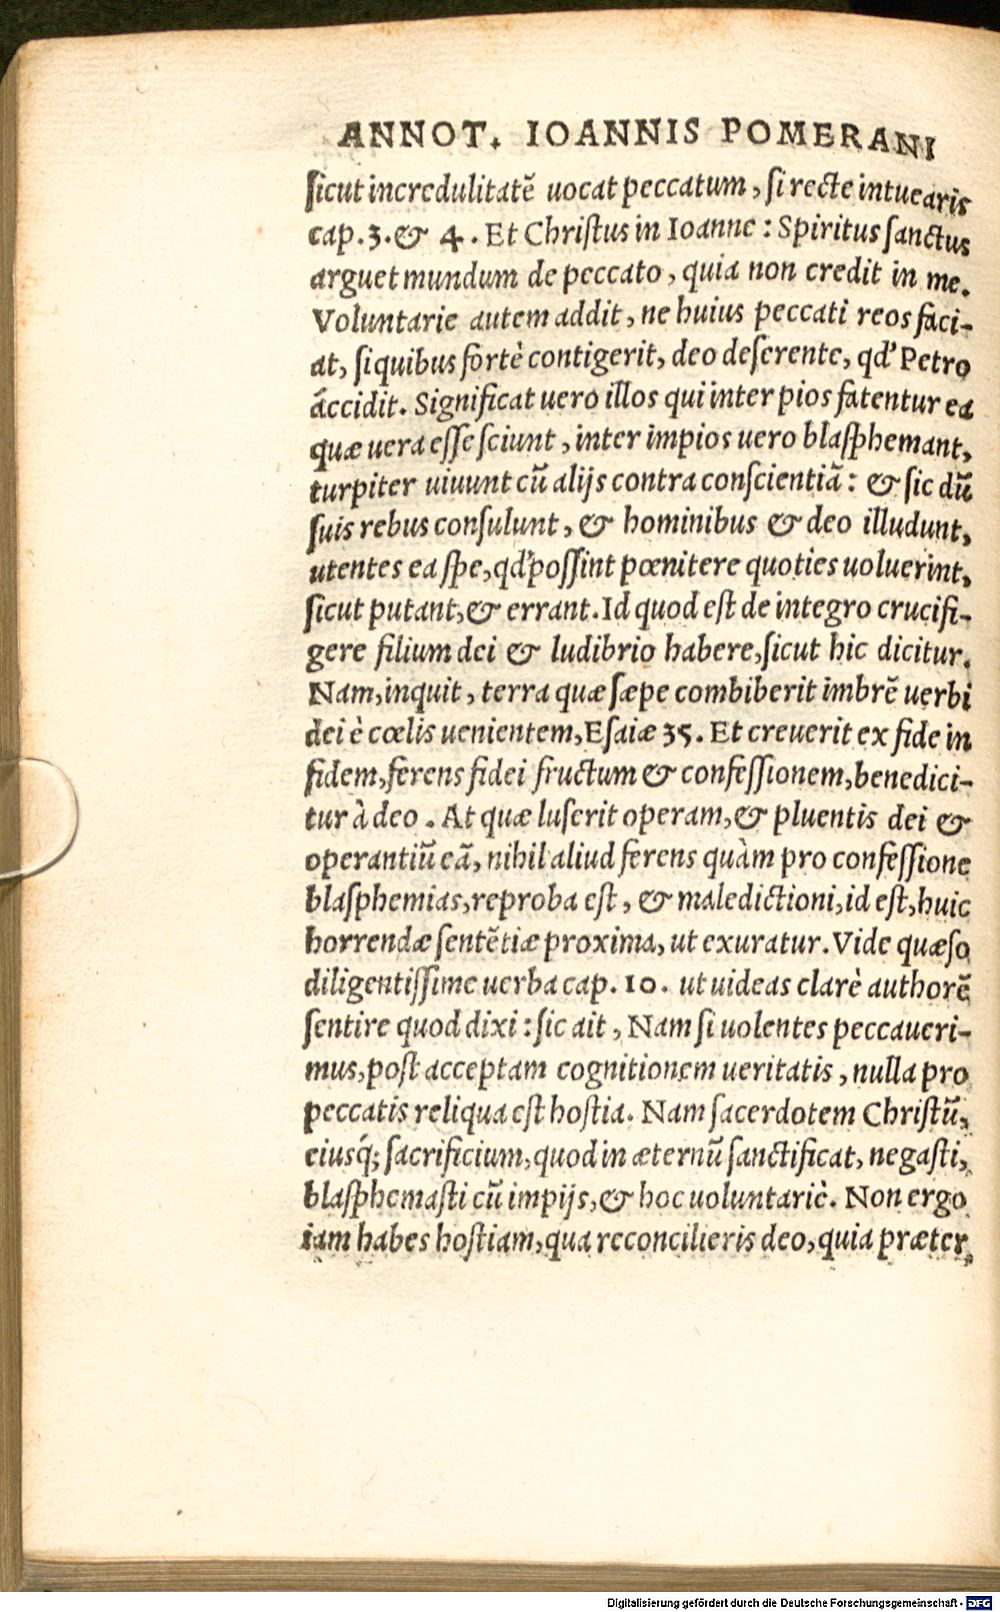 ANNOT. IOANNIS POMERANI
ſicut incredulitatē uocat peccatum, ſi recte intuearis
cap. 3. & 4. Et Chriſtus in Ioanne: Spiritus ſanctus
arguet mundum de peccato, quia non credit in me.
Voluntarie autem addit, ne huius peccati reos faci-
at, ſi quibus fortè contigerit, deo deſerente, qd' Petro
accidit. Significat uero illos qui inter pios fatentur ea
quæ uera eſſe ſciunt, inter impios uero blaſphemant,
turpiter uiuunt cū alijs contra conſcientiā: & ſic dū
ſuis rebus conſulunt, & hominibus & deo illudunt,
utentes ea ſpe, qd' poſſint pœnitere quoties uoluerint,
ſicut putant, & errant. Id quod eſt de integro crucifi-
gere filium dei & ludibrio habere, ſicut hic dicitur.
Nam, inquit, terra quæ ſæpe combiberit imbrē uerbi
dei è cœlis uenientem, Eſaiæ 35. Et creuerit ex fide in
fidem, ferens fidei fructum & confeſſionem, benedici-
tur à deo. At quæ luſerit operam, & pluentis dei &
operantiū eā, nihil aliud ferens quàm pro confeſſione
blaſphemias, reproba eſt, & maledictioni, id eſt, huic
horrendæ ſentētiæ proxima, ut exuratur. Vide quæſo
diligentiſſime uerba cap. 10. ut uideas clarè authorē
ſentire quod dixi: ſic ait, Nam ſi uolentes peccaueri-
mus, poſt acceptam cognitionem ueritatis, nulla pro
peccatis reliqua eſt hoſtia. Nam ſacerdotem Chriſtū,
eiusq́; ſacrificium, quod in æternū ſanctificat, negaſti,
blaſphemaſti cū impijs, & hoc uoluntariè. Non ergo
iam habes hoſtiam, qua reconcilieris deo, quia præter
Digitalisierung gefördert durch die Deutsche Forschungsgemeinschaft - DFG